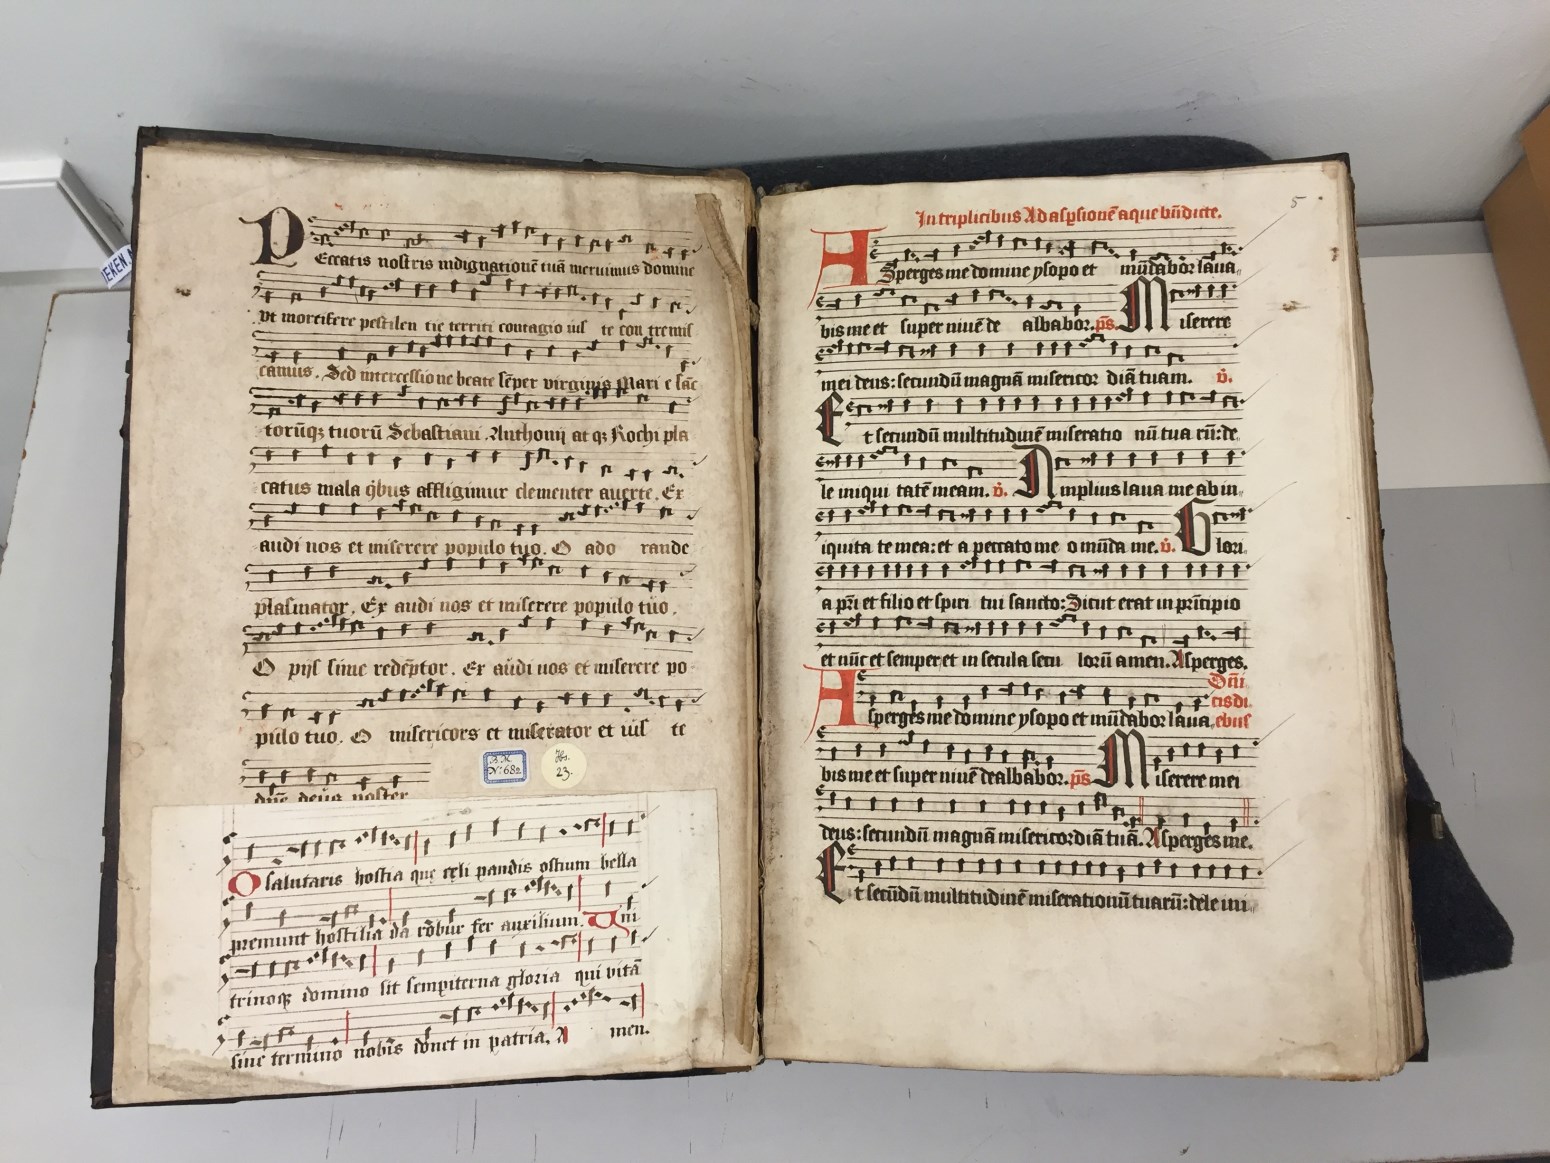 Peccatis nostris indignationē tuā meruimus domine
vt mortifere pestilen tie territi contagio uis te con tremis
camus. Sed intercessio ne beate sēper virginis Mari e sāc
torūqꝫ tuorū Sebastiani. Anthonij at qꝫ Rochi pla
catus mala q̄bus affligimur clementer auerte. Ex
audi nos et miserere populo tuo. O ado rande
plasmator. Ex audi nos et miserere populo tuo.
O pijs sime redēptor. Ex audi nos et miserere po
pulo tuo. O misericors et miserator et iuſ te
dn̄e deus noster
B.M.
N: 682
Hs.
23.
O salutaris hostia que celi pandis ostium bella
premunt hostilia da robur fer auxilium. Uni
trinoqꝫ domino sit sempiterna gloria qui vitā
sine termino nobis donet in patria. A men.
5
In triplicibus Ad aspsionē aque bn̄dicte.
Asperges me domine ysopo et mūdabor laua-
bis me et super niuē de albabor. ps̄. Miserere
mei deus: secundū magnā misericor diā tuam. v̄.
Et secundū multitudinē miseratio nū tua rū: de
le iniqui tatē meam. v̄. Amplius laua me ab in-
iquita te mea: et a peccato me o mūda me. v̄. Glori
a pr̄i et filio et spiri tui sancto: Sicut erat in prīcipio
et nūc et semper et in secula secu lorū amen. Asperges.
Dn̄i
cis di
ebus
Asperges me domine ysopo et mūdabor laua
bis me et super niuē dealbabor. ps̄ Miserere mei
deus: secundū magnā misericordiā tuā. Asperges me.
Et secūdū multitudinē miserationū tuarū: dele ini